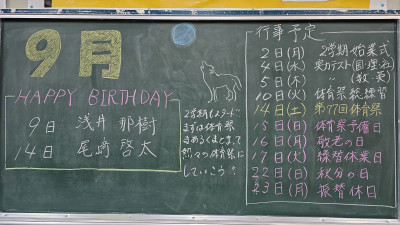 9月
HAPPY BIRTHDAY
9日 浅井 那樹
14日 尾﨑 啓太
2学期もスタート
まずは体育祭
きめるくまとまって
熱々の体育祭に
していこう!
行事予定
2日(月) 2学期始業式
4日(水) 実力テスト(国理英)
5日(木) 〃 (数英)
10日(火) 体育祭総練習
14日(土) 第77回体育祭
15日(日) 体育祭予備日
16日(月) 敬老の日
17日(火) 振替休業日
22日(日) 秋分の日
23日(月) 振替休日